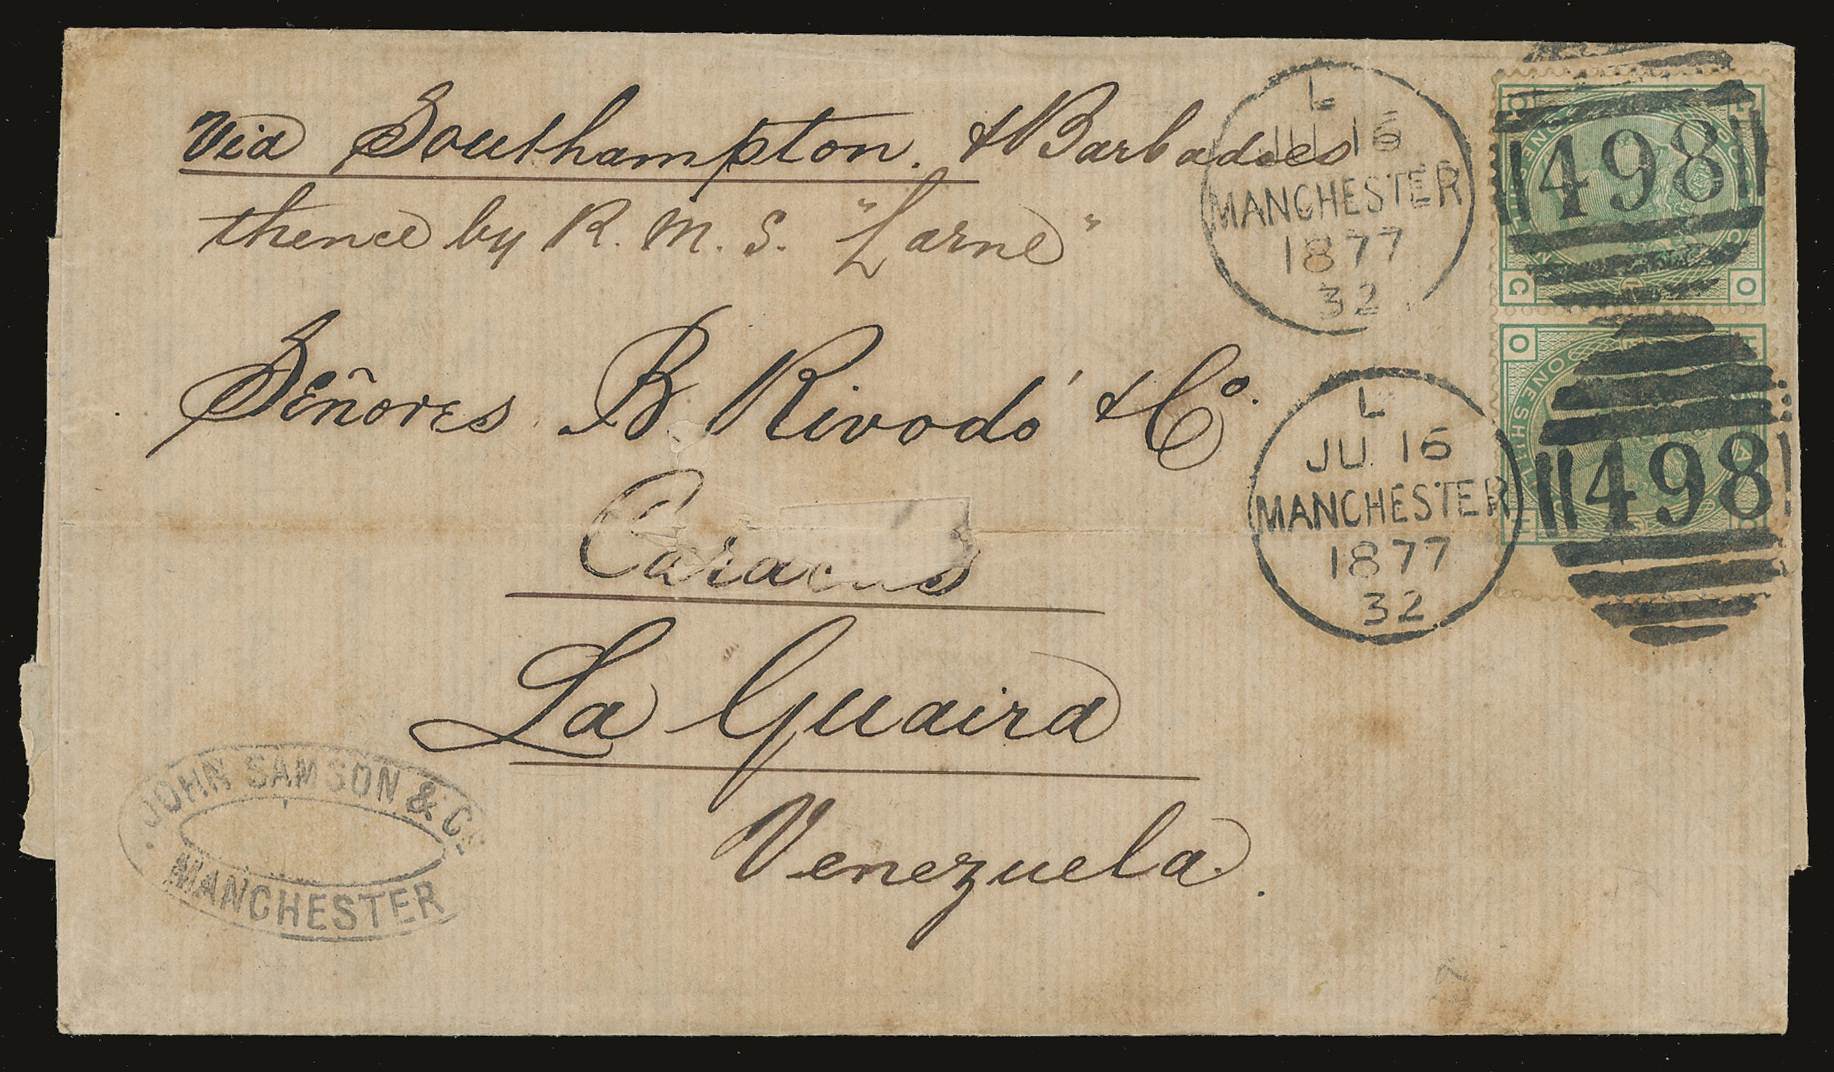 Via Southampton. & Barbadoes
thence by R. M. S. "Larne"
Señores B Rivodó & Co.
Caracas
La Guaira
Venezuela.
JOHN SAMSON & Co.
MANCHESTER
L
JU 16
MANCHESTER
1877
32
498
L
JU 16
MANCHESTER
1877
32
498
O
C
O
ONE SHILL